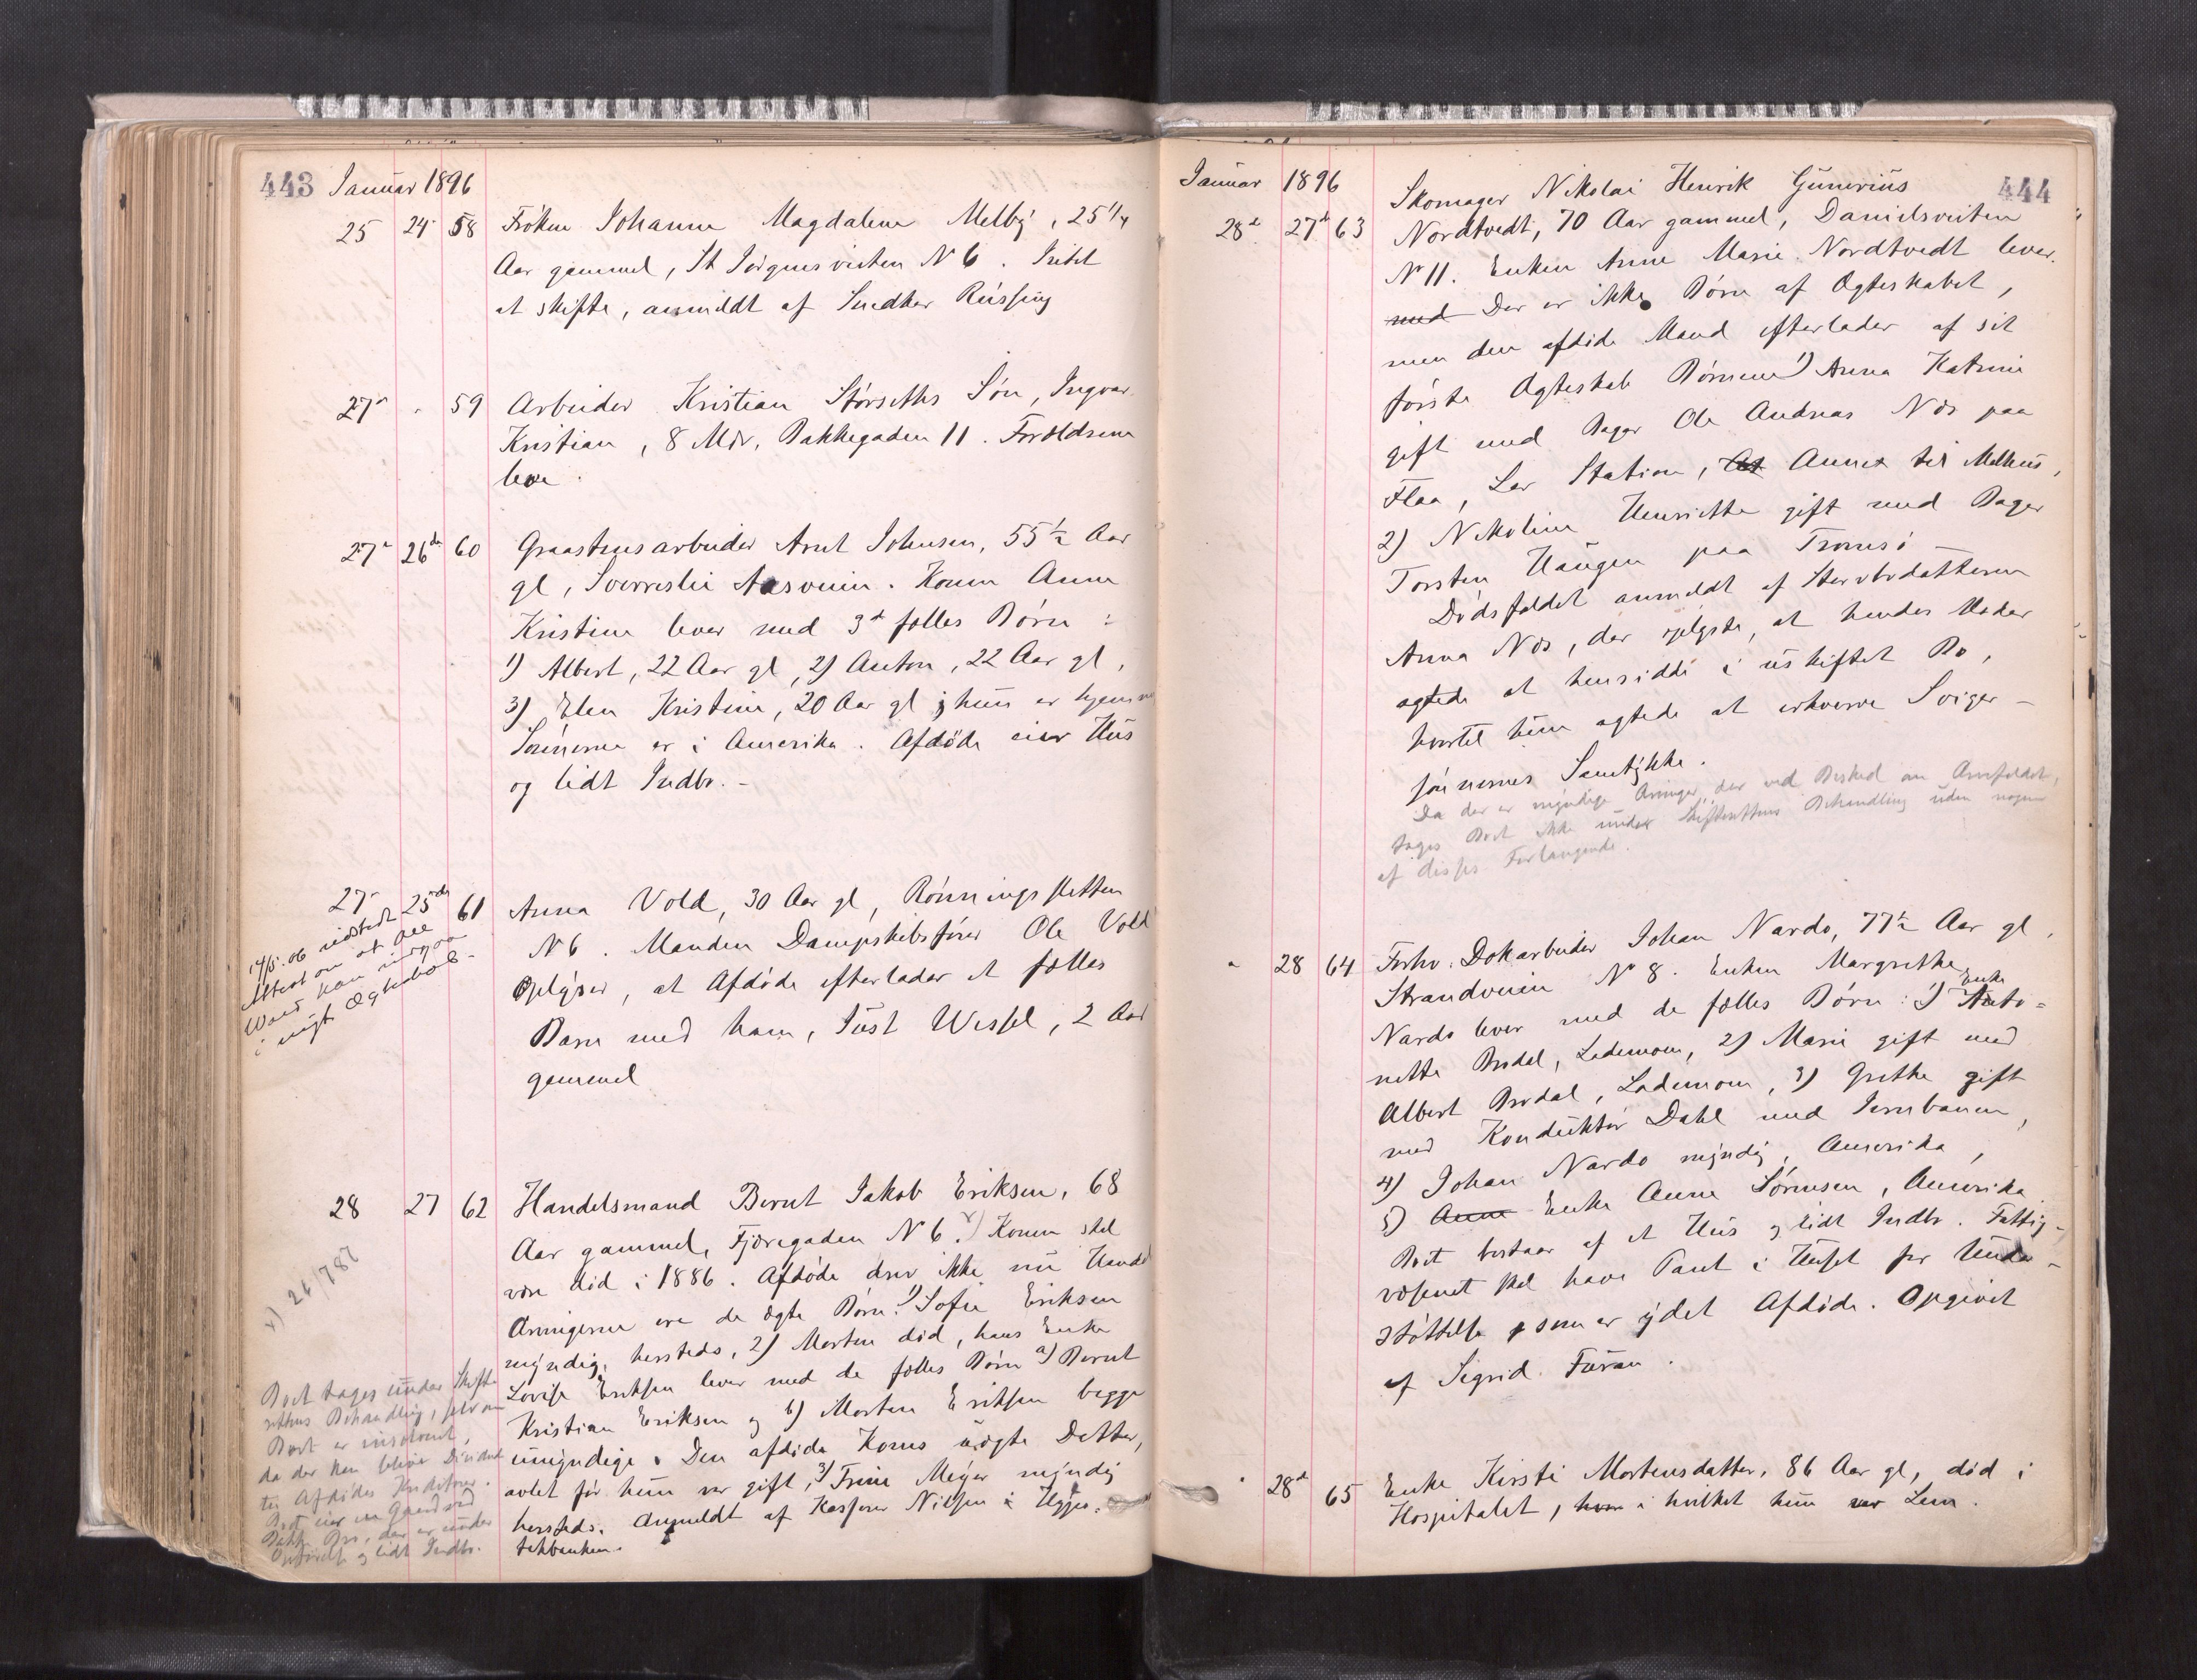 443 Januar 1896
25 24 58 Frøken Johanne Magdalene Melby, 25 1/4
Aar gammel, St Jørgensveiten N 6. Intet
at skifte, anmeldt af Snedker Rüssing
27 " 59 Arbeider Kristian Størseths Søn, Ingvar
Kristian, 8 Mdr, Bakkegaden 11. Forældrene
leve.
27 26de 60 Graastensarbeider Arnt Johnsen, 55 1/2 Aar
gl, Sverreslie Aasveien. Konen Anne
Kristine lever med 3de fælles Børn:
1) Albert, 22 Aar gl, 2) Anton, 22 Aar gl,
3) Elen Kristine, 20 Aar gl; hun er hjemme
Sønnerne er i Amerika. Afdøde eier Hus
og lidt Indbo.-
27 25de 61 Anna Vold, 30 Aar gl, Rønningsletten
N 6. Manden Dampskibsfører Ole Vold
Oplyser, at Afdøde efterlader et fælles
Barn med ham, Just Wessel, 2 Aar
gammel
14/5.06 udstedt
Attest om at Ole
Wold kan indgaa
i nyt Ægteskab.-
28 27 62 Handelsmand Bernt Jakob Eriksen, 68
Aar gammel, Fjæregaden N 6. x) Konen skal
være død i 1886. Afdøde drev ikke nu Handel
Arvingerne ere de ægte Børn: 1) Sofie Eriksen
myndig, hersteds, 2) Morten død, hans Enke
Lovise Eriksen lever med de fælles Børn a) Bernt
Kristian Eriksen og b) Morten Eriksen begge
umyndige. Den afdøde Kones uægte Datter,
avlet før hun var gift, 3) Trine Meyer myndig
hersteds. Anmeldt af Kasserer Nilsen i Hypo-
thekbanken.
x) 26/787
Boet tages under Skifte
rettens Behandling, selv om
Boet er insolvent,
da der kan blive Dividende
til Afdødes Kreditorer.
Boet eier en Gaard ved
Bakke Bro, der er under
og lidt Indbo.
Januar 1896 444
28de 27de 63 Skomager Nikolai Henrik Gunerius
Nordtvedt, 70 Aar gammel, Danielsveiten
No 11. Enken Anne Marie Nordtvedt lever.
med Der er ikke Børn af Ægteskabet,
men den afdøde Mand efterlader af sit
første Ægteskab Børnene 1) Anna Katrine
gift med Bager Ole Andreas Næs paa
Flaa, Ler Station, At Annex til Melhus,
2) Nikoline Henriette gift med Bager
Torsten Haugen paa Tromsø
Dødsfaldet anmeldt af Stervbodatteren
Anna Næs, der oplyste, at hendes Moder
agtede at hensidde i uskiftet Bo,
hvortil hun agtede at erhverve Sviger-
sønnernes Samtykke.
Da der er myndige Arvinger, der ved Besked om Arvefaldet,
tages Boet ikke under Skifterettens Behandling uden nogen
af disses Forlangende.
" 28 64 Forhv. Dokarbeider Johan Nardo, 77 1/2 Aar gl,
Strandveien No 8. Enken Margrethe
Nardo lever med de fælles Børn: 1) Enke Anto-
nette Brdal, Lademoen, 2) Marie gift med
Albert Brdal, Lademoen, 3) Grethe gift
med Konduktør Dahl ved Jernbanen,
4) Johan Nardo myndig, Amerika,
5) Anne Enke Anne Sørensen, Amerika
Boet bestaar af et Hus og lidt Indbo. Fattig-
væsenet skal have Pant i Huset for Under-
støttelse som er ydet Afdøde. Opgivet
af Sigrid Furan.
" 28de 65 Enke Kirsti Mortensdatter, 86 Aar gl, død i
Hospitalet, hvor i hvilket hun var Lem.